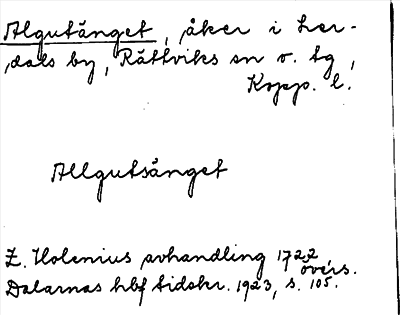 Algutänget, åker i Ler-
dals by, Rättviks sn o. tg,
Kopp. l.
Allgutsänget
Z. Holenius avhandling 1722,
övers.
Dalarnas hbf tidskr. 1923, s. 105.